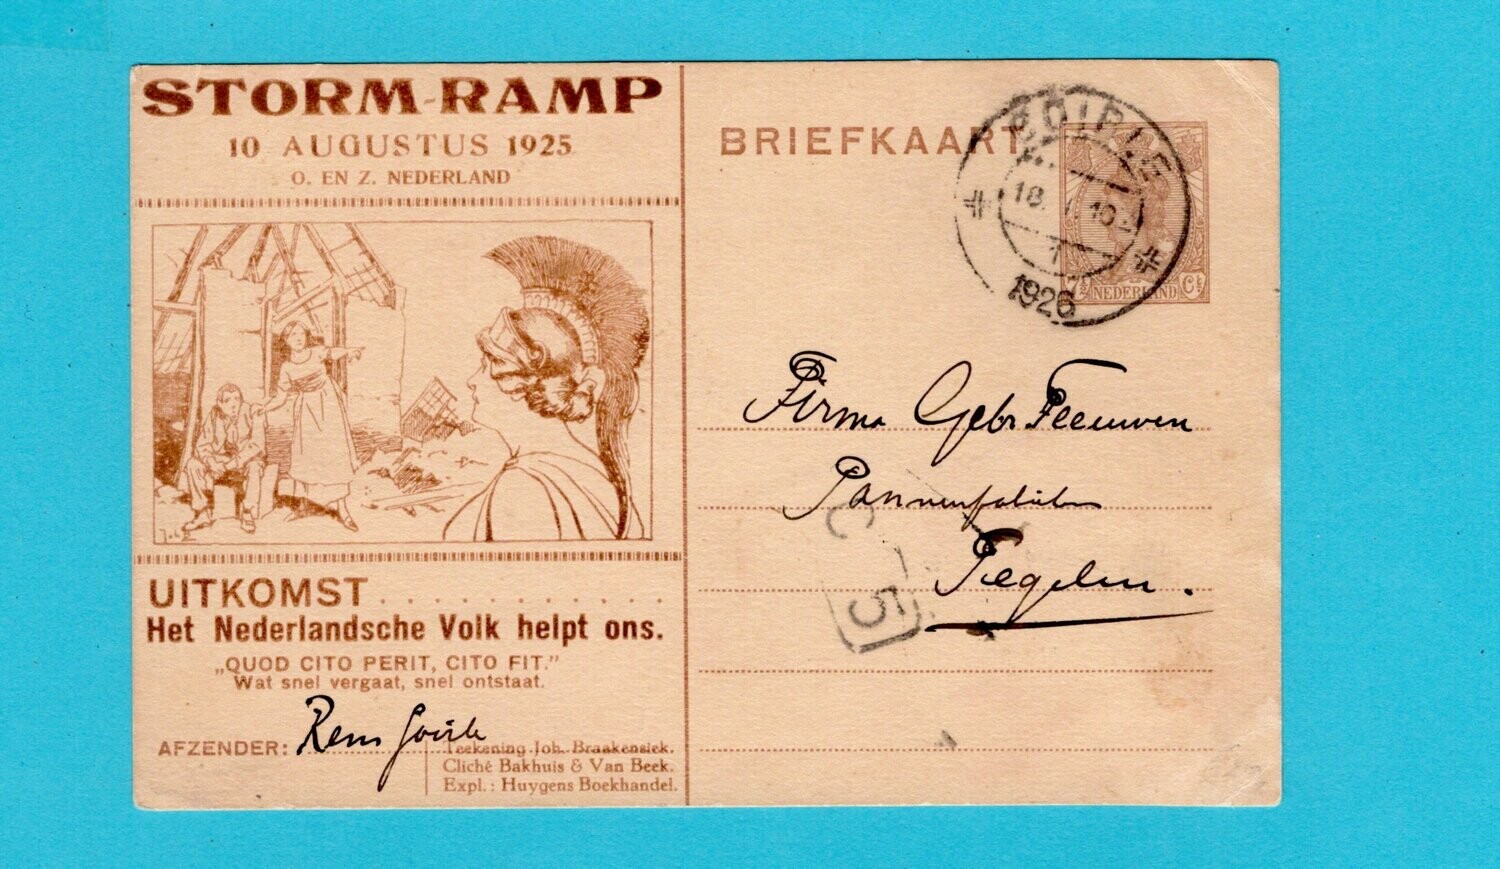 STORM-RAMP
10 AUGUSTUS 1925
O. EN Z. NEDERLAND
UITKOMST . . . . . . . . . . . .
Het Nederlandsche Volk helpt ons.
„QUOD CITO PERIT, CITO FIT."
Wat snel vergaat, snel ontstaat.
AFZENDER: Rens
Teekening Joh. Braakensiek.
Cliché Bakhuis & Van Beek.
Expl.: Huygens Boekhandel.
BRIEFKAART
1926
7½ NEDERLAND Ct
Firma Gebr Teeuwen
Pannenfabriek
Tegelen.
C
5